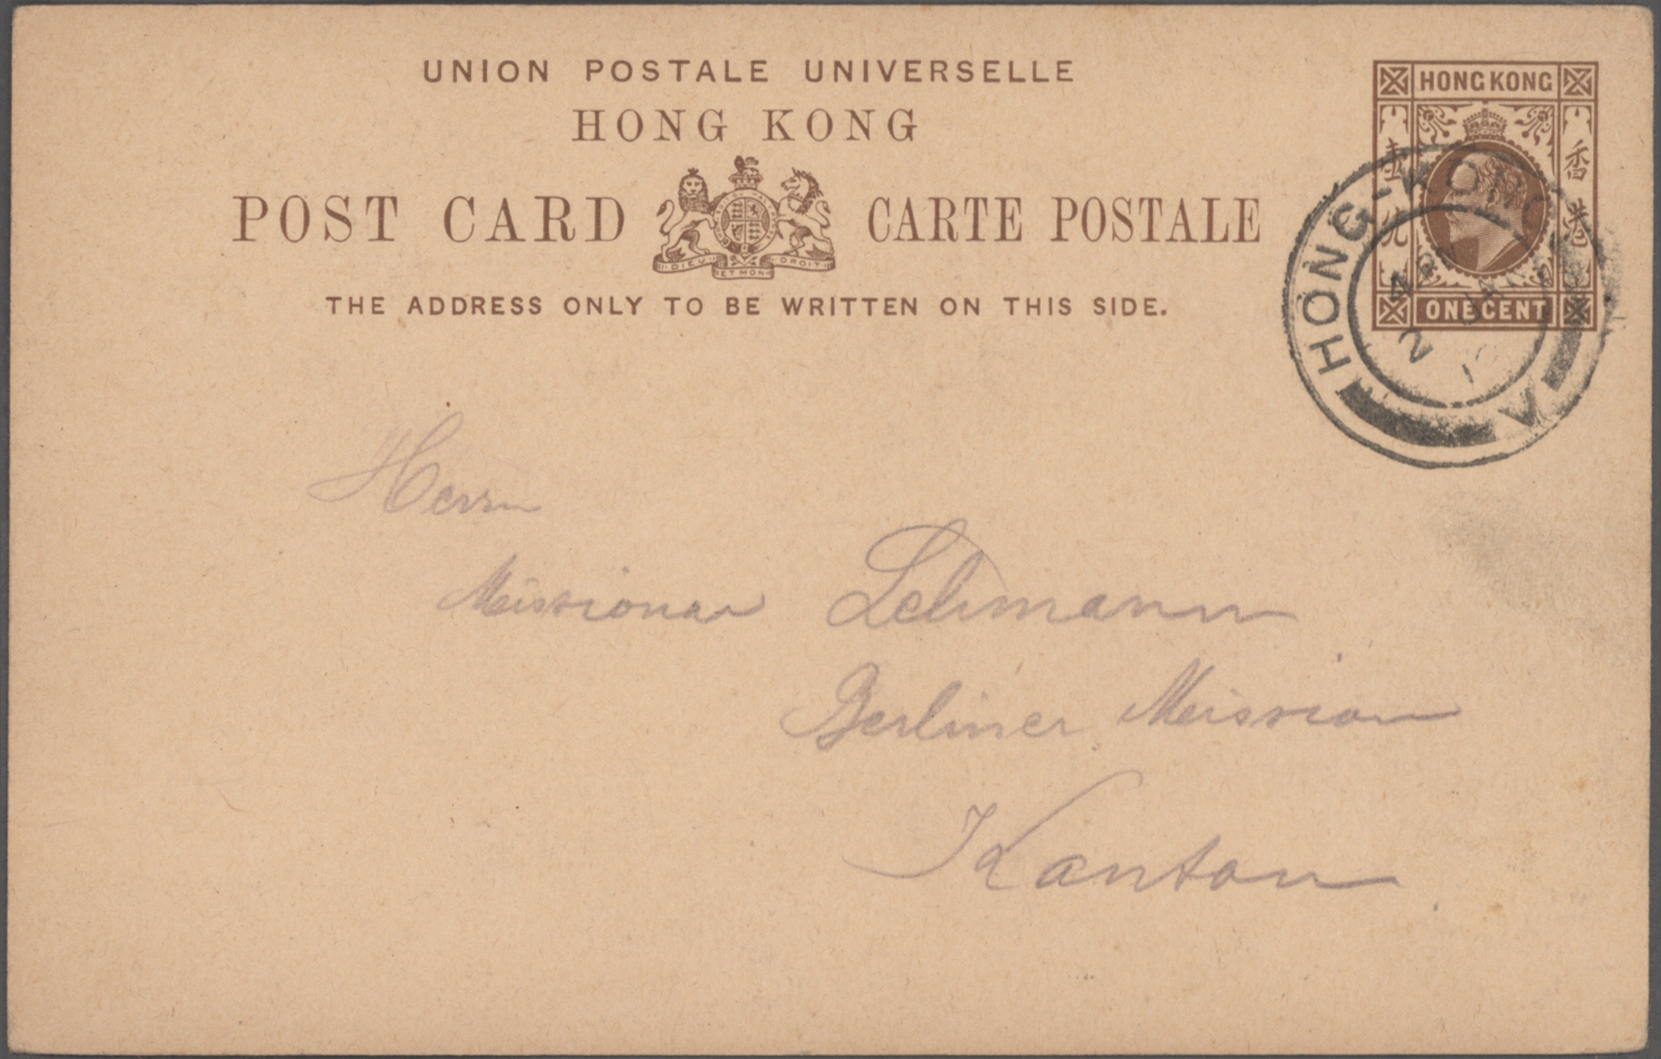 UNION POSTALE UNIVERSELLE
HONG KONG
POST CARD CARTE POSTALE
DIEU ET MON DROIT
THE ADDRESS ONLY TO BE WRITTEN ON THIS SIDE.
HONG KONG
香港
壹
ONE CENT
HONG-KONG
2
V
Herrn
Missionar Lehmann
Berliner Mission
Kanton